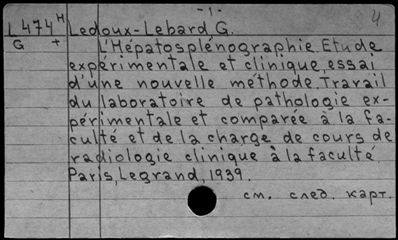 -1-
4
L474H Ledoux-Lebard, G.
G +
L'Hépatosplénographie. Etude
expérimentale et clinique, essai
d'une nouvelle méthode. Travail
du laboratoire de pathologie ex-
périmentale et comparée à la fa-
culté et de la charge de cours de
radiologie clinique à la faculté.
Paris, Legrand, 1939.
см. след. карт.